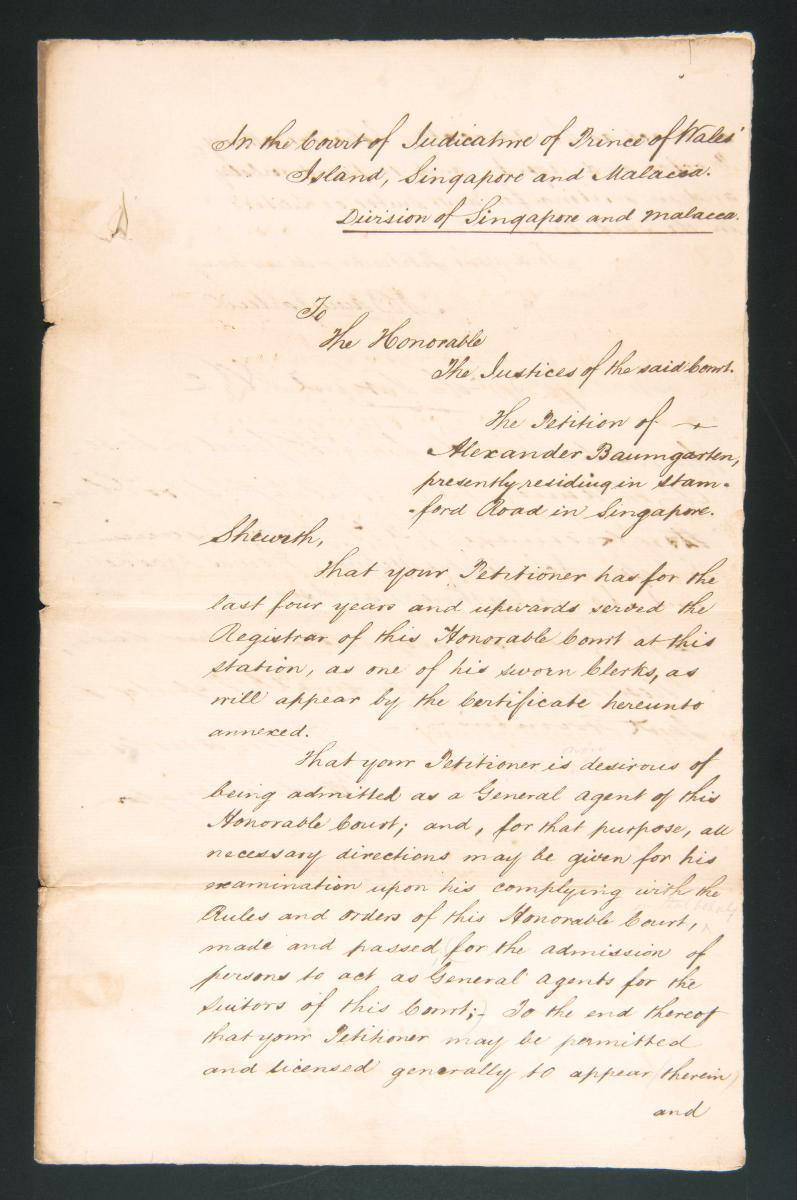 In the Court of Judicature of Prince of Wales'
Island, Singapore and Malacca.
Division of Singapore and Malacca.
To
The Honorable
The Justices of the said Court.
The Petition of
Alexander Baumgarten,
presently residing in Stam-
-ford Road in Singapore.
Sheweth,
That your Petitioner has for the
last four years and upwards served the
Registrar of this Honorable Court at this
station, as one of his sworn Clerks, as
will appear by the Certificate hereunto
annexed.
now
That your Petitioner is desirous of
being admitted as a General Agent of this
Honorable Court; and, for that purpose, all
necessary directions may be given for his
examination upon his complying with the
Rules and orders of this Honorable Court,
made and passed for the admission of
persons to act as General Agents for the
Suitors of this Court;- To the end thereof
that your Petitioner may be permitted
and licensed generally to appear (therein)
and